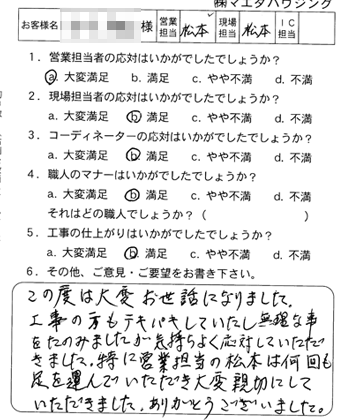 ㈱マエダハウジング
お客様名 様 営業担当 松本 現場担当 松本 IC担当
1．営業担当者の応対はいかがでしたでしょうか？
a. 大変満足 b. 満足 c. やや不満 d. 不満
2．現場担当者の応対はいかがでしたでしょうか？
a. 大変満足 b. 満足 c. やや不満 d. 不満
3．コーディネーターの応対はいかがでしたでしょうか？
a. 大変満足 b. 満足 c. やや不満 d. 不満
4．職人のマナーはいかがでしたでしょうか？
a. 大変満足 b. 満足 c. やや不満 d. 不満
それはどの職人でしょうか？（ ）
5．工事の仕上がりはいかがでしたでしょうか？
a. 大変満足 b. 満足 c. やや不満 d. 不満
6．その他、ご意見・ご要望をお書き下さい。
この度は大変お世話になりました。
工事の方もテキパキしていたし無理な事
をたのみましたが気持ちよく応対していただ
きました。特に営業担当の松本は何回も
足を運んでいただき大変親切にして
いただきました。ありがとうございました。